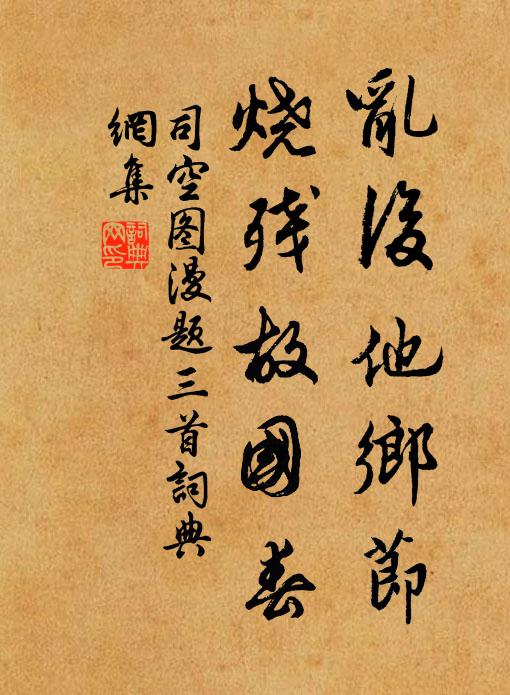 亂後他鄉節
烧残故國春
司空图漫题三首詞典
網集
詞典
网印